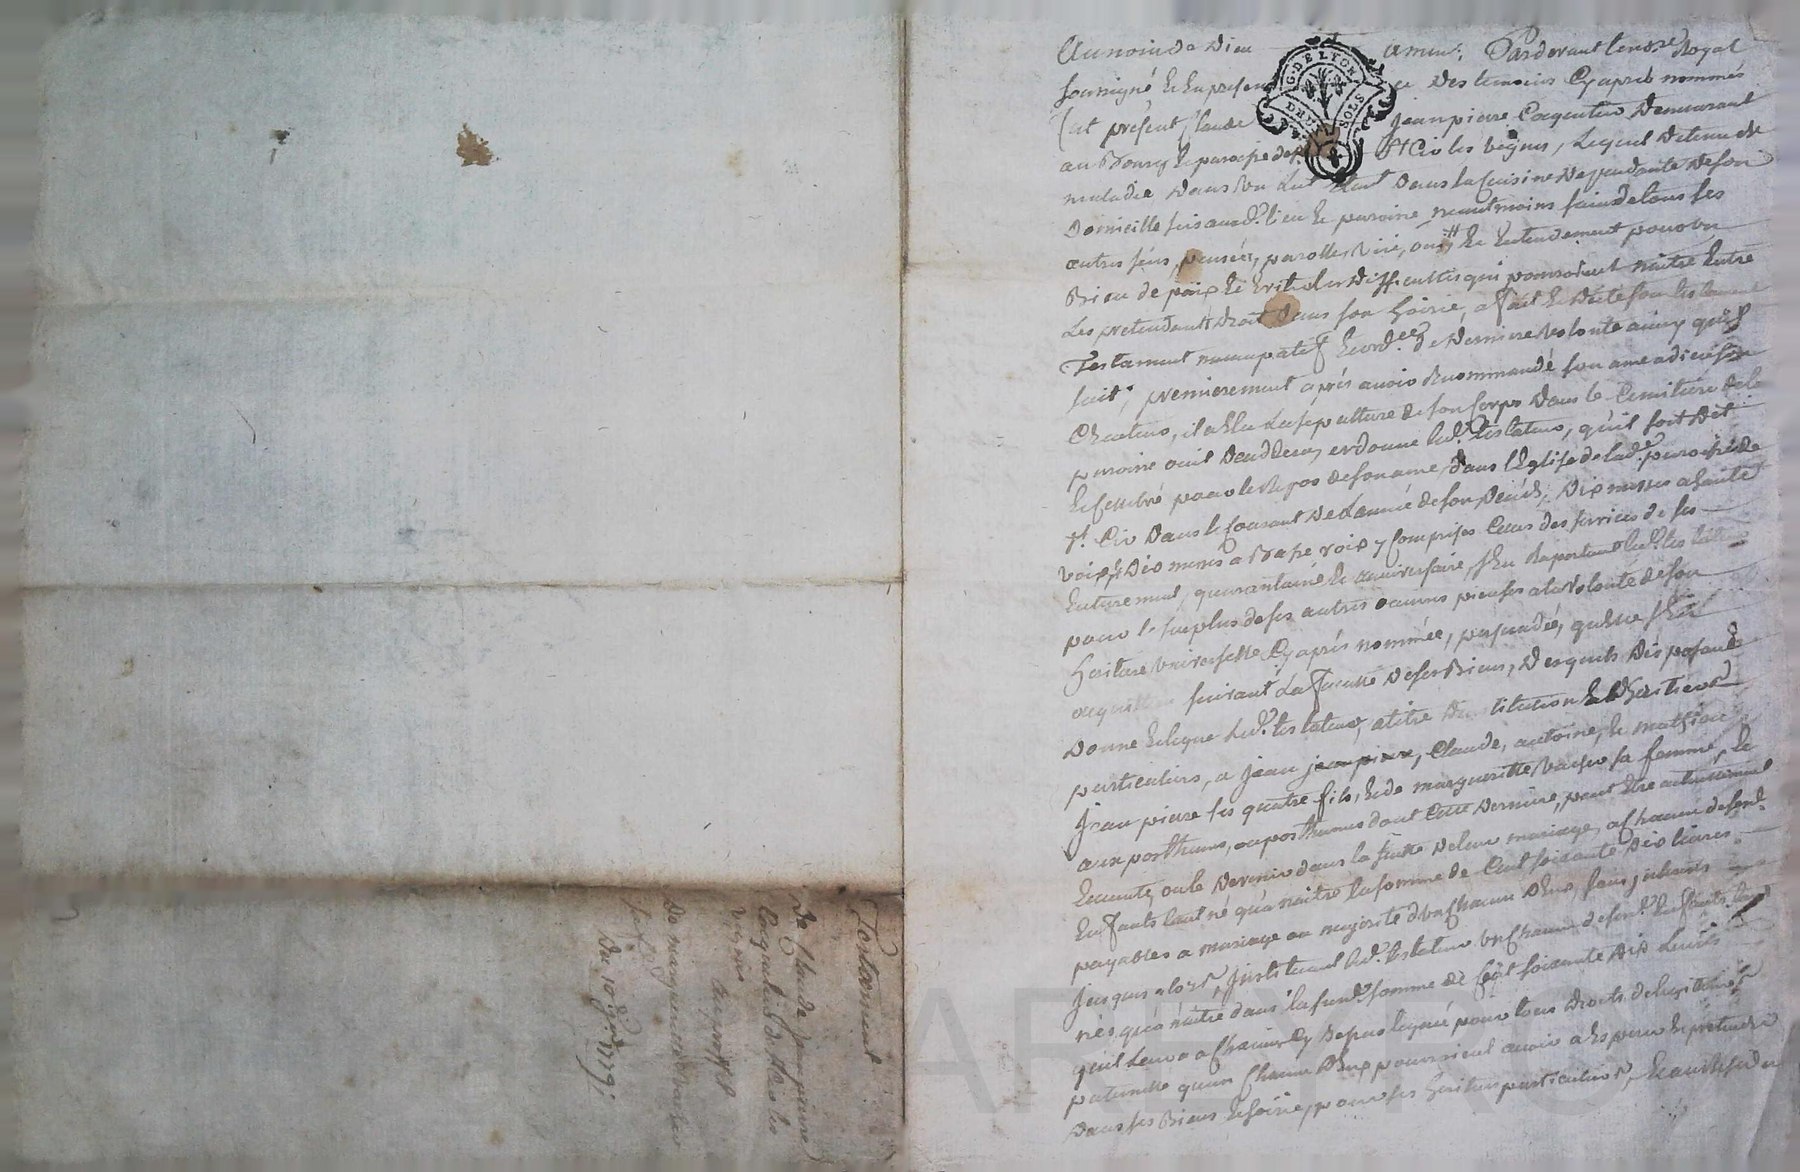 Au nom de Dieu amen; Pardevant le no.re Royal
soussigné & en presence des temoins Cy après nommés
fut présent Claude jean pierre Coquatrix Demeurant
au Bourg & paroisse de St Cir les vignes, Lequel detenu de
maladie Dans un Lit étant Dans la Cuisine Dependante de son
Domicille sis aud.t lieu & paroisse neantmoins sain de tous ses
autres sens, pensée, parolle, vüe, ouy & Entendement pour un
Bien de paix & Eviter les Difficultés qui pourroient naitre Entre
Les pretendants droit dans son hoirie, a fait &
Testament nuncupatif & ord.ce de Derniere volonté ainsy qu'il
suit; premierement après avoir Recommandé son ame a dieu son
Createur, il a Elu La sepulture de son Corps Dans le Cimitiere de la
paroisse ou il Decedera, ordonne led.t testateur, qu'il soit Dit
& Celebré pour le Repos de son ame, dans l'Eglise de lad.e paroisse de
St. Cir Dans le Courant De L'année de son Décéds, Dix messes a haute
voix & Dix messes a Basse voix y Comprises Celles des services de ses
Enterrement, quarantaine & anniversaire, s'En Raportant led.t testateur
pour le surplus de ses autres œuvres pieuses a la volonté de son
heritiere universelle Cy après nommée, persuadé, qu'elle s'En
acquittera suivant La faculté de ses Biens, Desquels Disposant
Donne & legue led.t testateur, a titre D'institution & d'heritiers
particuliers, a jean jean pierre, Claude, antoine, & mathieu
jean pierre ses quatre fils, & de margueritte sa femme, &
aux posthume, ou posthumes dont Cette Derniere, peut Etre actuellement
Enceinte, ou le Devenir dans la suitte de leur mariage, a Chacun de sesd.
Enfants tant né qu'a naitre la somme de Cent soixante Dix livres
payables a mariage ou majorité d'un Chacun D'Eux, sans interets
jusques alors, instituant led.t testateur un Chacun de sesd.ts Enfants tant
nés qu'a naitre dans la susd.e somme de Cent soixante Dix livres
qu'il Leur a a Chacun Cy Dessus leguée pour tous droits de legitime
paternelle qu'un Chacun D'Eux pourroient avoir a Esperer & pretendre
Dans ses Biens & hoirie, pour ses heritiers particuliers, & au Residu
G. DE LYON
DEUX SOLS
Testament
De Claude jean pierre
Coquatrix de St Cir les
vignes
au proffit
De margueritte
sa fe
Du 10 1779;